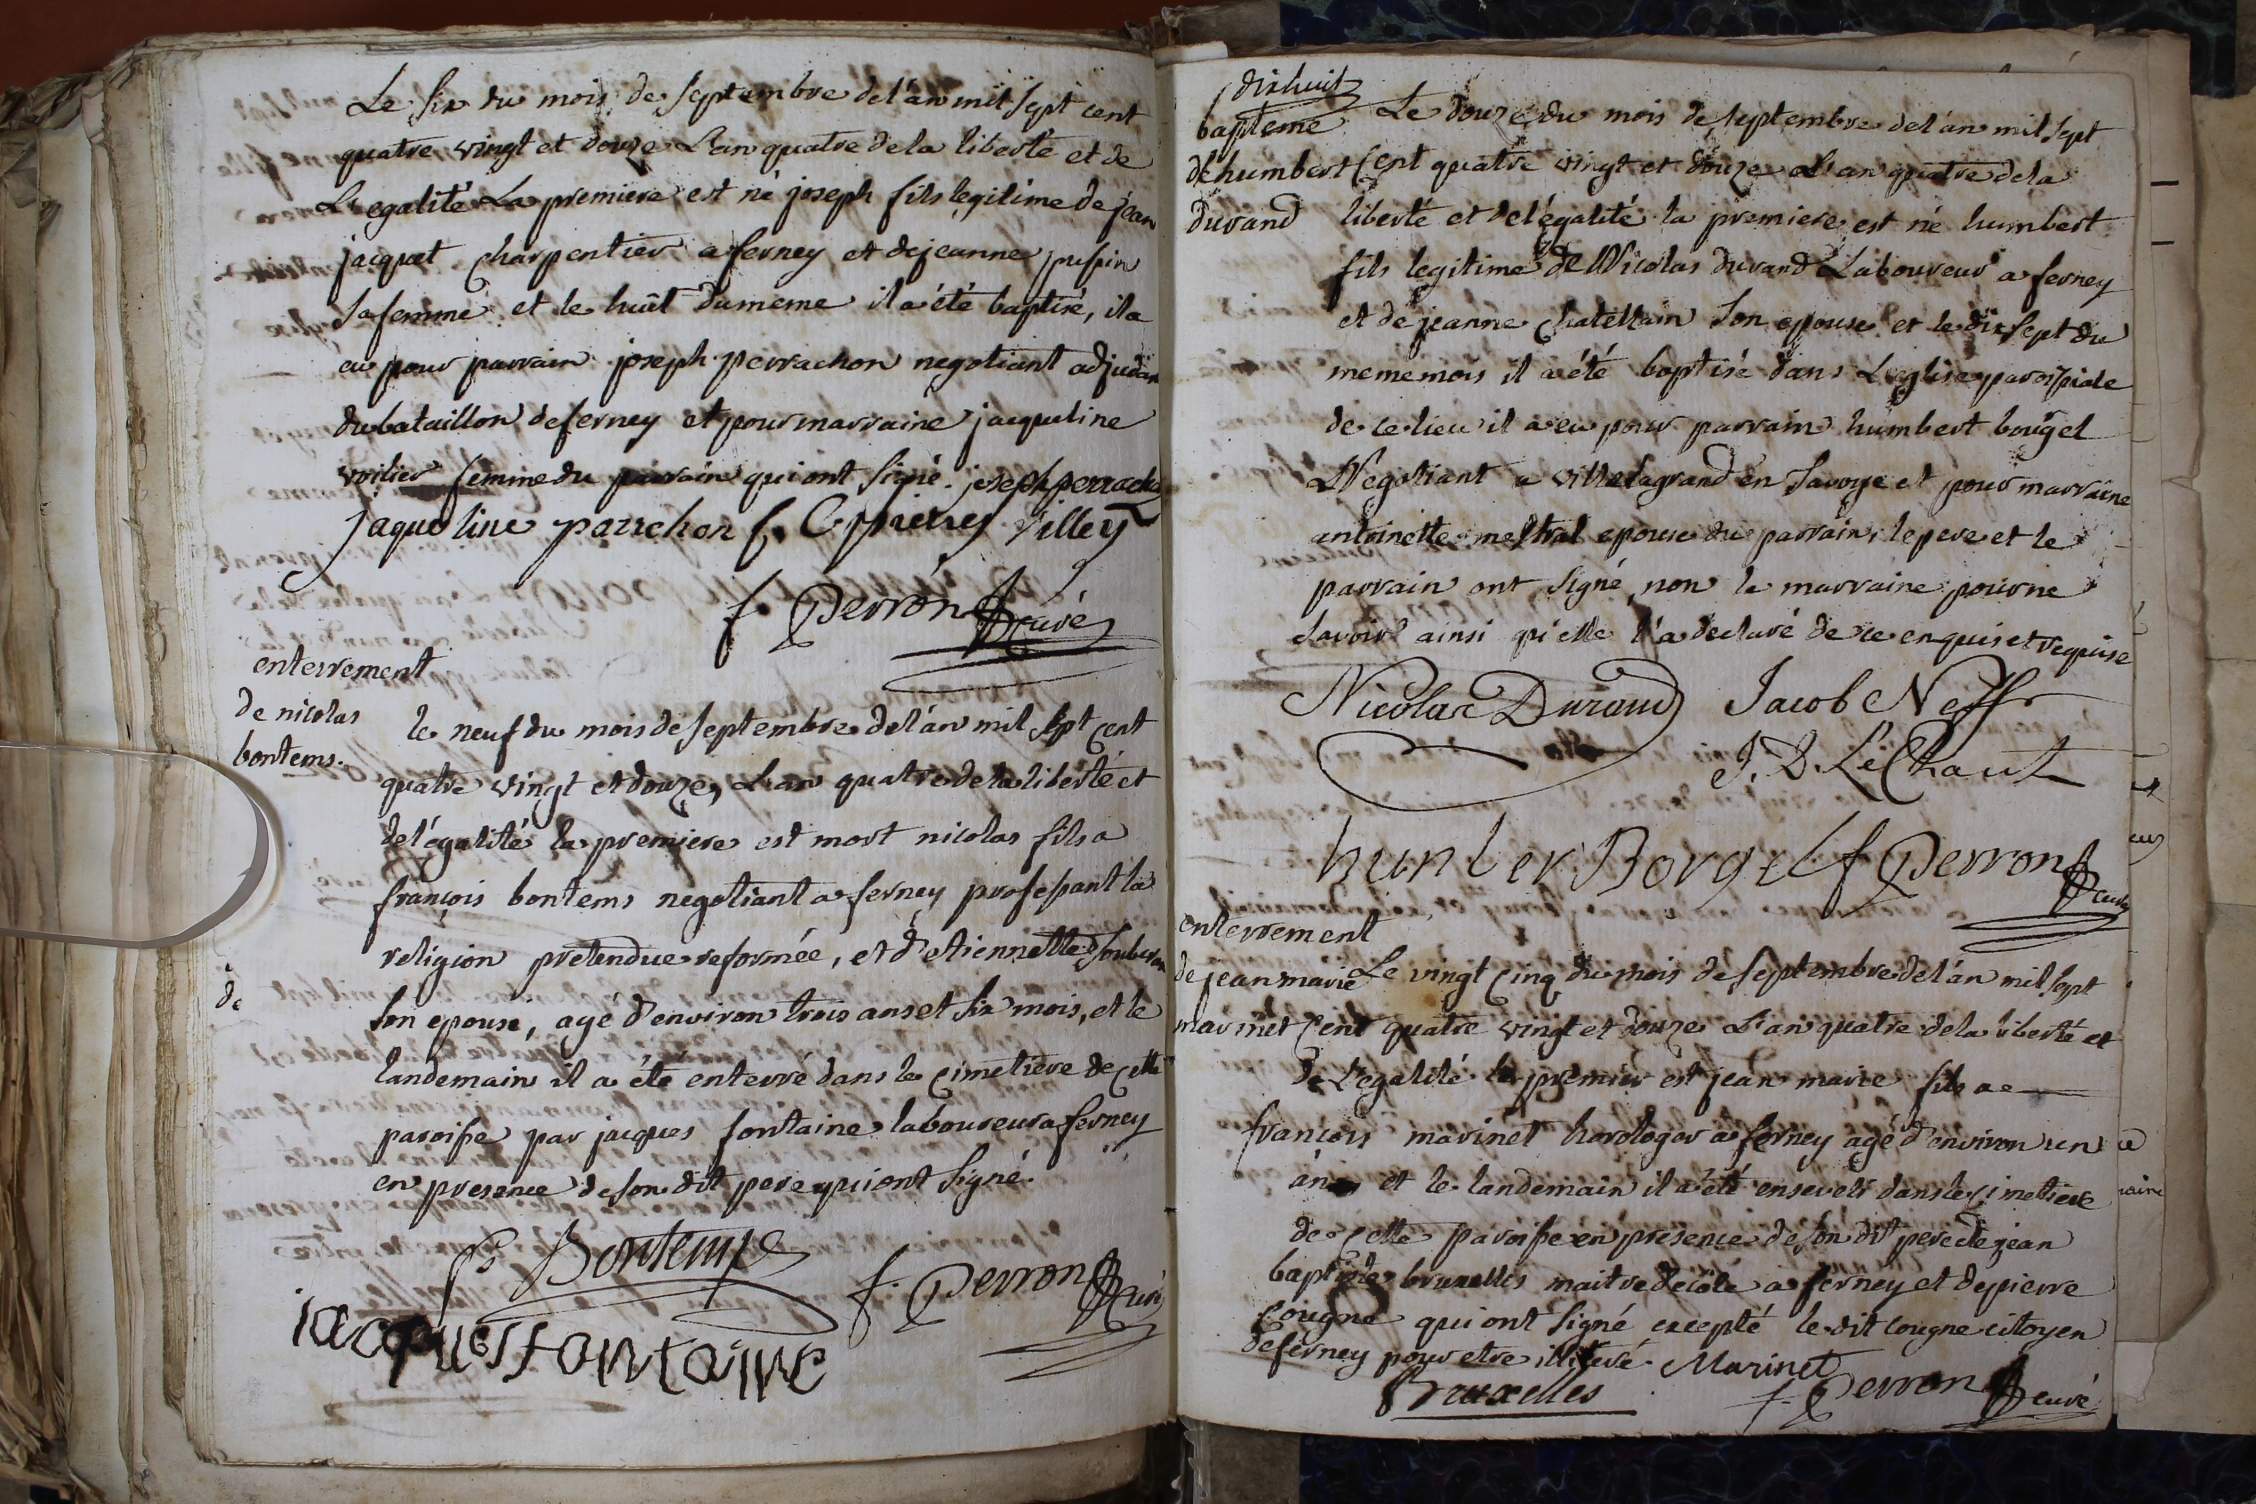 Le six du mois de septembre del'an mil sept cent
quatre vingt et douze L'an quatre dela liberté et de
L'egalité La premiere est né joseph fils legitime de jean
jacquet charpentier a ferney et dejeanne pupin
sa femme et le huit dumeme il a été baptisé, il a
eu pour parrain joseph perrachon negotiant adjudan
dubataillon deferney et pour marraine jaqueline
voilier femme du parrain qui ont signé. joseph perracho
jaqueline parrchon f. C villey
f. Perron curé
enterrement
de nicolas
bontems.
le neuf du mois de septembre del'an mil sept cent
quatre vingt et douze, L'an quatre dela liberté et
del'égalité la premiere est mort nicolas fils a
françois bontems negotiant a ferney professant la
religion pretendue reformée, et d'etiennette
de
son epouse, agé d'environ trois ans et six mois, et le
landemain il a été enterré dans le cimetiere de cette
paroisse par jacques fontaine laboureur a ferney
en presence de son dit pere qui ont signé.
fs Bontemps
f. Perron curé
iacques fontaine
dixhuit
bapteme
de humbert
durand
Le douze du mois de septembre del'an mil sept
cent quatre vingt et douze L'an quatre dela
liberté et del'égalité la premiere est né humbert
fils legitime de Nicolas durand Laboureur a ferney
et de jeanne chatellain son epouse et le dix sept du
meme mois il a été baptisé dans L'eglise paroissiale
de ce lieu il a eu pour parrain humbert bougel
Negotiant a villelagrand en Savoye et pour marraine
antoinette mestral epouse du parrain, le pere et le
parrain ont signé, non la marraine pour ne
savoir ainsi qu'elle l'a declaré de ce enquise et requise
Nicolas Durand Jacob Neff
J. D. LéChaut
hunber Borgel f Perron curé
enterrement
de jean marie
marinet
Le vingt cinq du mois de septembre del'an mil sept
cent quatre vingt et douze L'an quatre dela liberté et
de L'egalité la premier est jean marie fils a
françois marinet horologer a ferney agé d'environ un
an et le landemain il a été enseveli dans le cimetiere
de cette paroisse en presence de son dit pere de jean
baptiste bruxelles maitre decole a ferney et de pierre
cougne qui ont signé excepté le dit cougne citoyen
deferney pour etre illiteré. Marinet
Bruxelles f. Perron curé